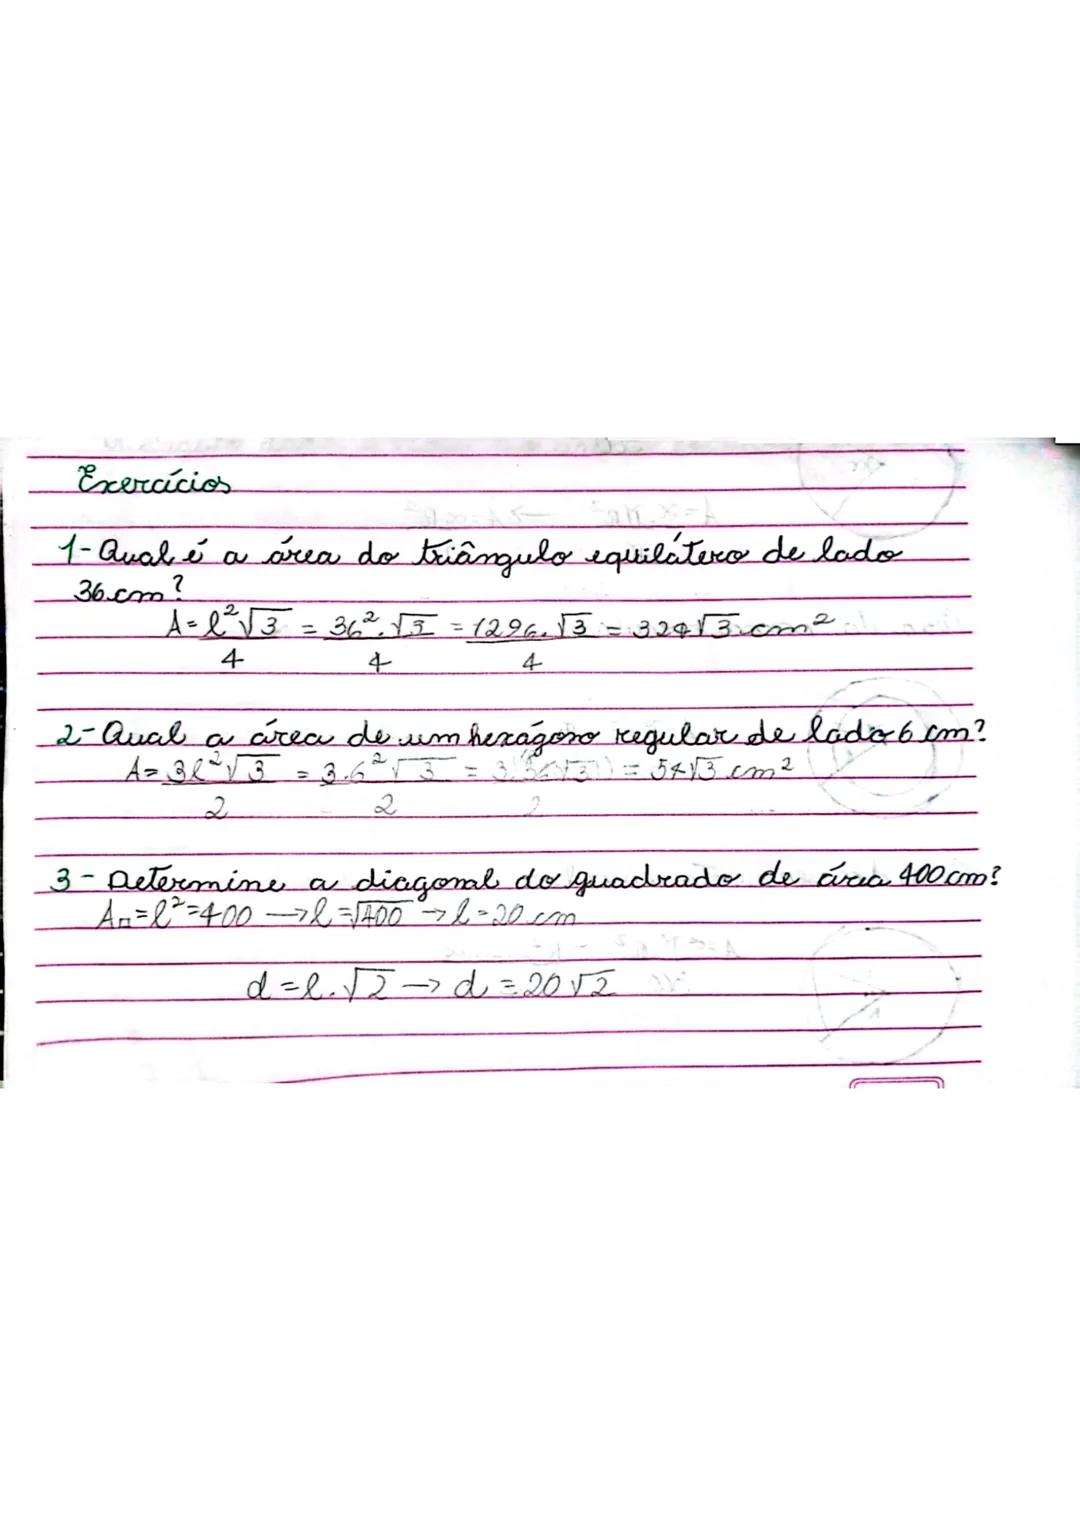 Exercícios
1- Qual é a área do triângulo equilátero de lado
36 cm?
A = l²√3 = 36².√3 = 1296.√3 = 324√3 cm²
4 4 4
2- Qual a área de um hexágono regular de lado 6 cm?
A = 3l²√3 = 3.6²√3 = 3.(36√3) = 54√3 cm²
2 2 2
3- Determine a diagonal do quadrado de área 400cm?
A□ = l² = 400 → l = √400 → l = 20 cm
d = l.√2 → d = 20√2